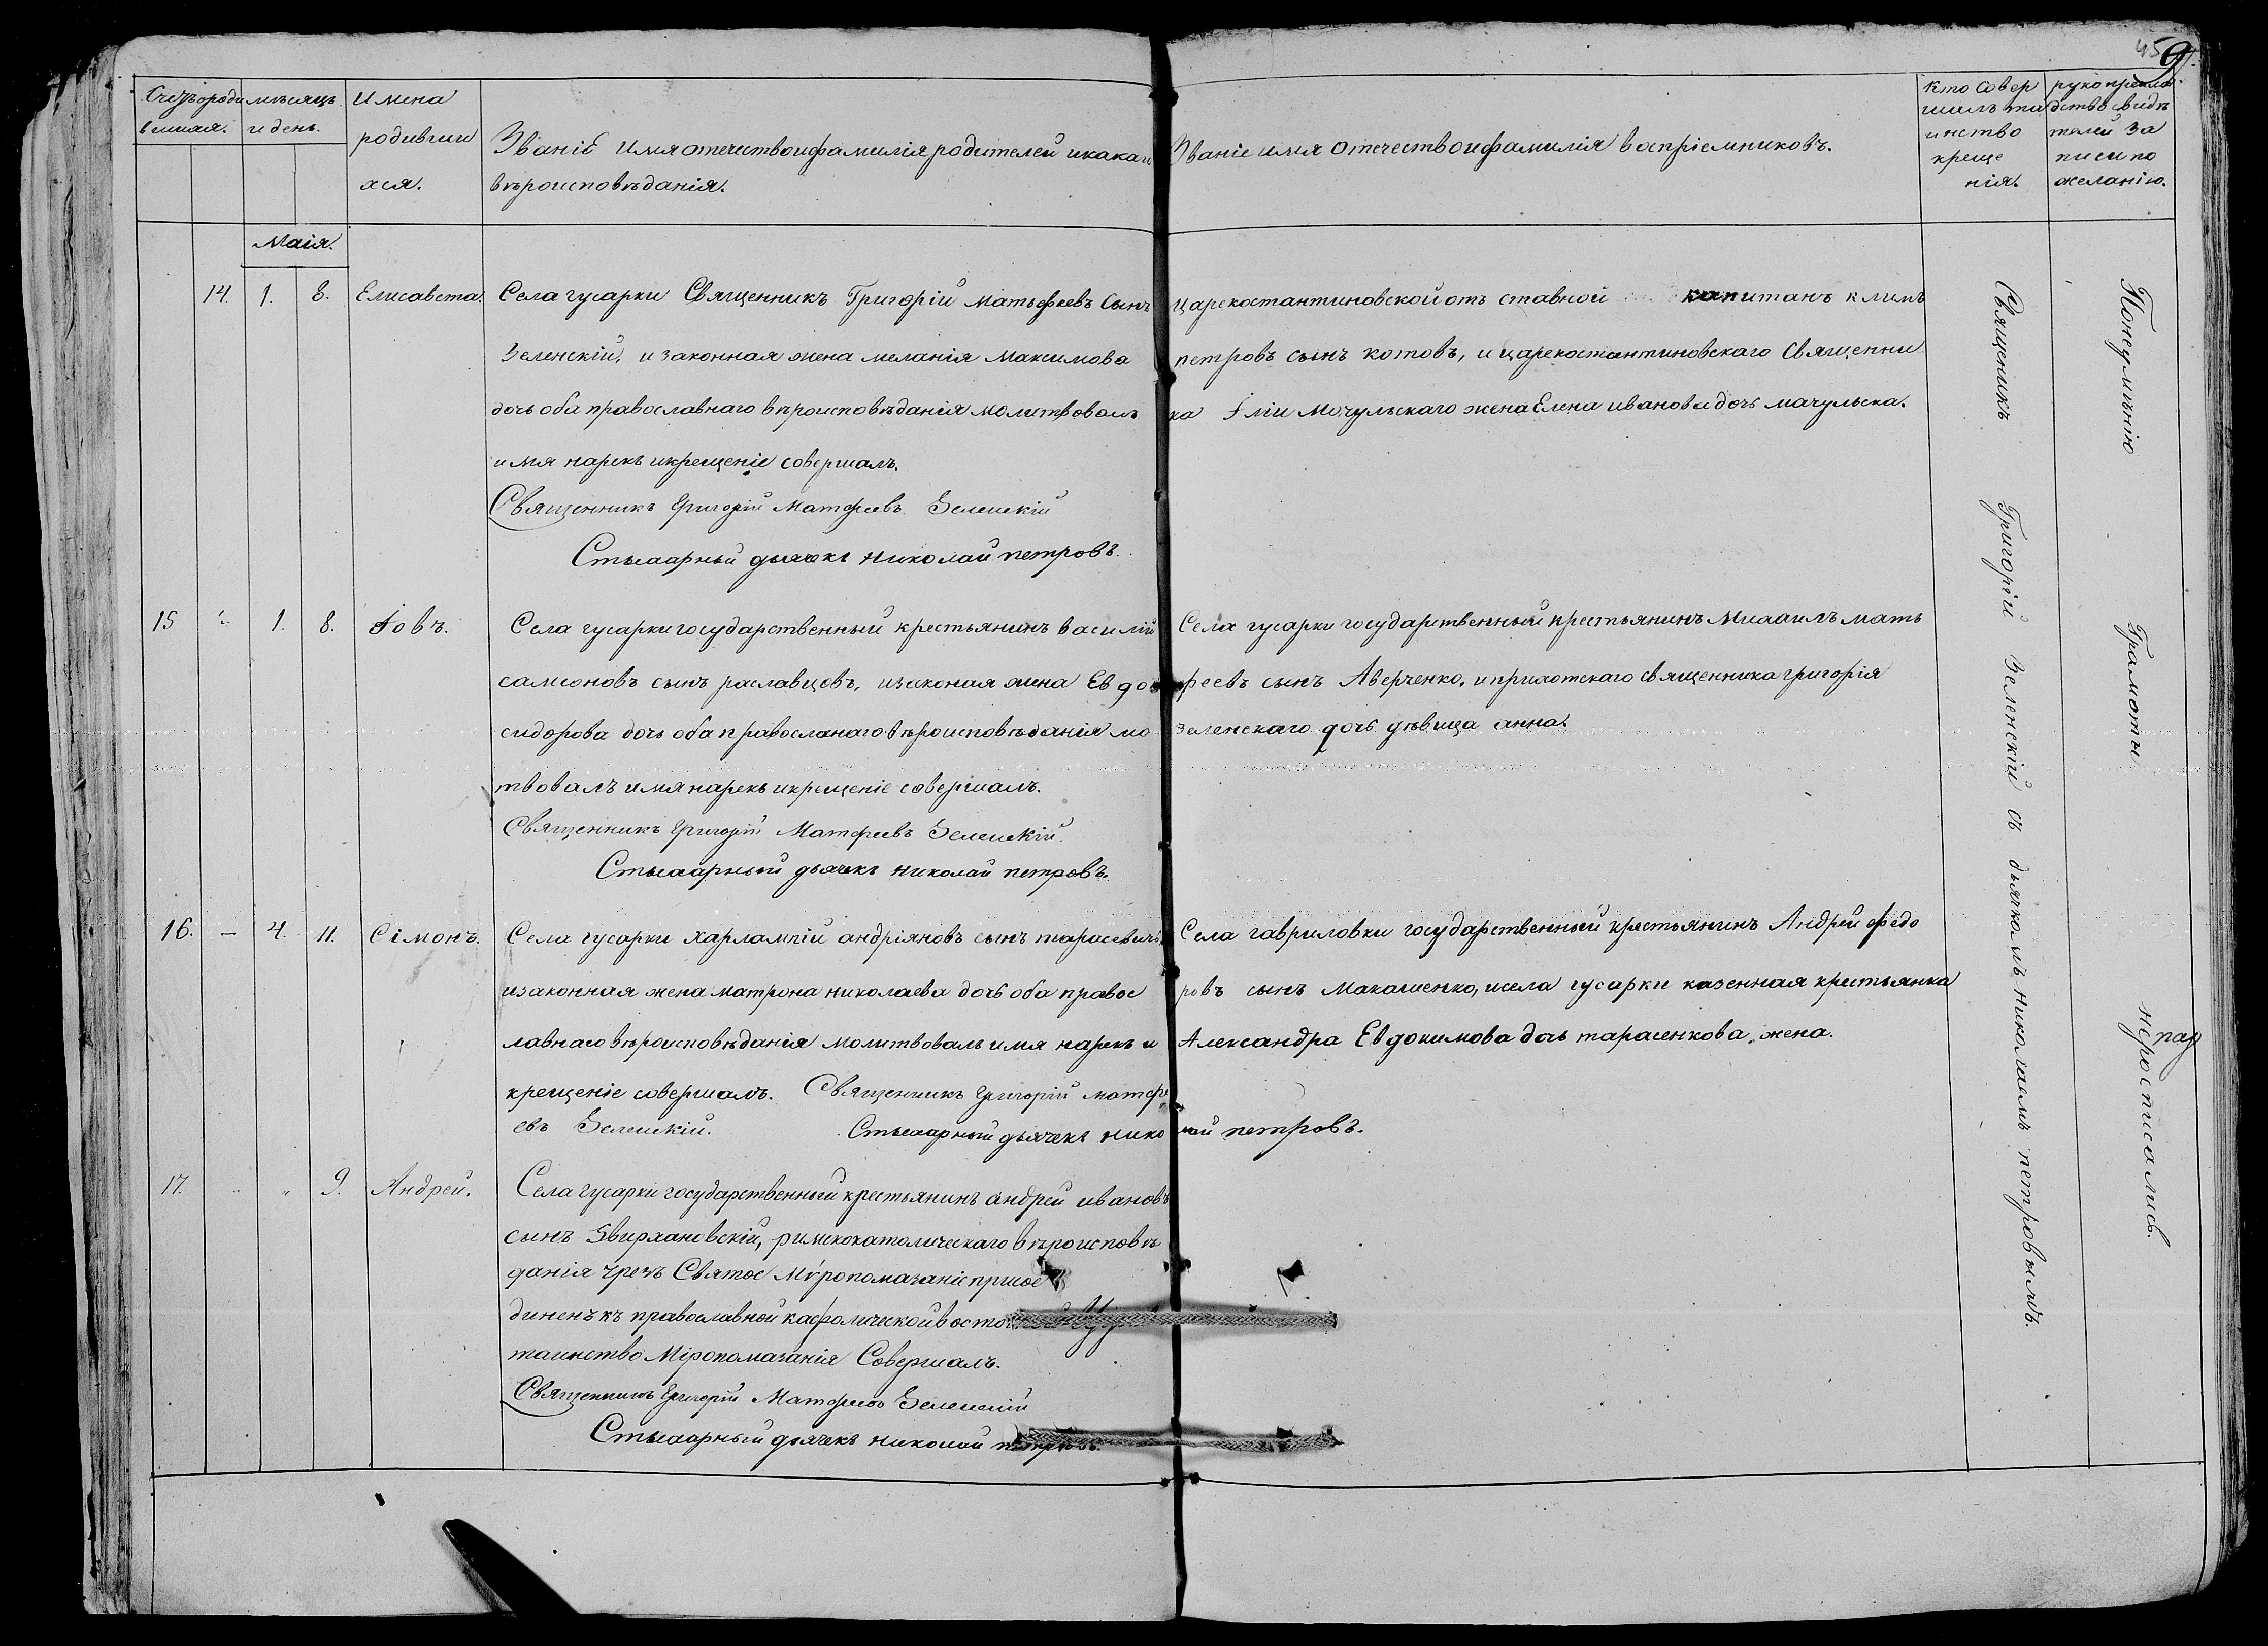 459.
Счетъ роди
вшихся.
мѣсяцъ
и день.
Имена
родивши
хся.
Званіе Имя отечество и фамилія родителей и какаи
вѣроисповѣданія.
Званіе имя отечество и фамилія воспріемниковъ.
Кто совер
шалъ та
инство
креще
нія.
рукоприкла
дство свидѣ
телей за
писи по
желанію.
Маія.
14. 1. 8. Елисавета.
Села гусарки Священникъ Григорій Матьфеевъ Сынъ
Зеленскій, и законная жена меланія Максимова
дочь оба православнаго вѣроисповѣданія молитвовалъ
имя нарекъ и крещеніе совершалъ.
Священникъ Григорій Матфеевъ Зеленскій
Стихарный дьячекъ Николай петровъ.
царекостантиновской отъ ставной капитанъ климъ
петровъ сынъ котовъ, и царекостантиновскаго Священни
ка Іліи Мочульскаго жена Елена иванова дочь мачульска.
15 1. 8. Іовъ.
Села гусарки государственный крестьянинъ василій
самсоновъ сынъ раславцовъ, и законая жена Евдо
сидорова дочь оба православнаго вѣроисповѣданія мо
твовалъ имя нарекъ и крещеніе совершалъ.
Священникъ Григорій Матфеевъ Зеленскій.
Стихарный дьячекъ Николай петровъ.
Села гусарки государственный крестьянинъ Михаилъ мать
феевъ сынъ Аверченко, и прихотскаго священника григорія
зеленскаго дочь дѣвица анна.
16. – 4. 11. Сімонъ.
Села гусарки Харлампій андріяновъ сынъ тарасевичъ
и законная жена матрона николаева дочь оба правос
лавнаго вѣроисповѣданія молитвовалъ имя нарекъ и
крещеніе совершалъ. Священникъ Григорій матфе
евъ Зеленскій. Стихарный дьячекъ Николай петровъ.
Села гавриловки государственный крестьянинъ Андрей федо
ровъ сынъ Макашенко, и села гусарки казенная крестьянка
Александра Евдокимова дочь тарасенкова жена.
17. " 9. Андрей.
Села гусарки государственный крестьянинъ андрей ивановъ
сынъ Звирхановскій, римскокатолическаго вѣроисповѣ
данія чрезъ Святое Мѵропомазаніе присое
диненъ къ православной кафолической восто
таинство Міропомазанія Совершалъ.
Священникъ Григорій Матфеевъ Зеленскій
Стихарный дьячекъ николай петровъ.
Священикъ Григорій Зеленскій съ дьячкомъ николаемъ петровымъ.
Понеумѣнію Грамоты
неросписались.